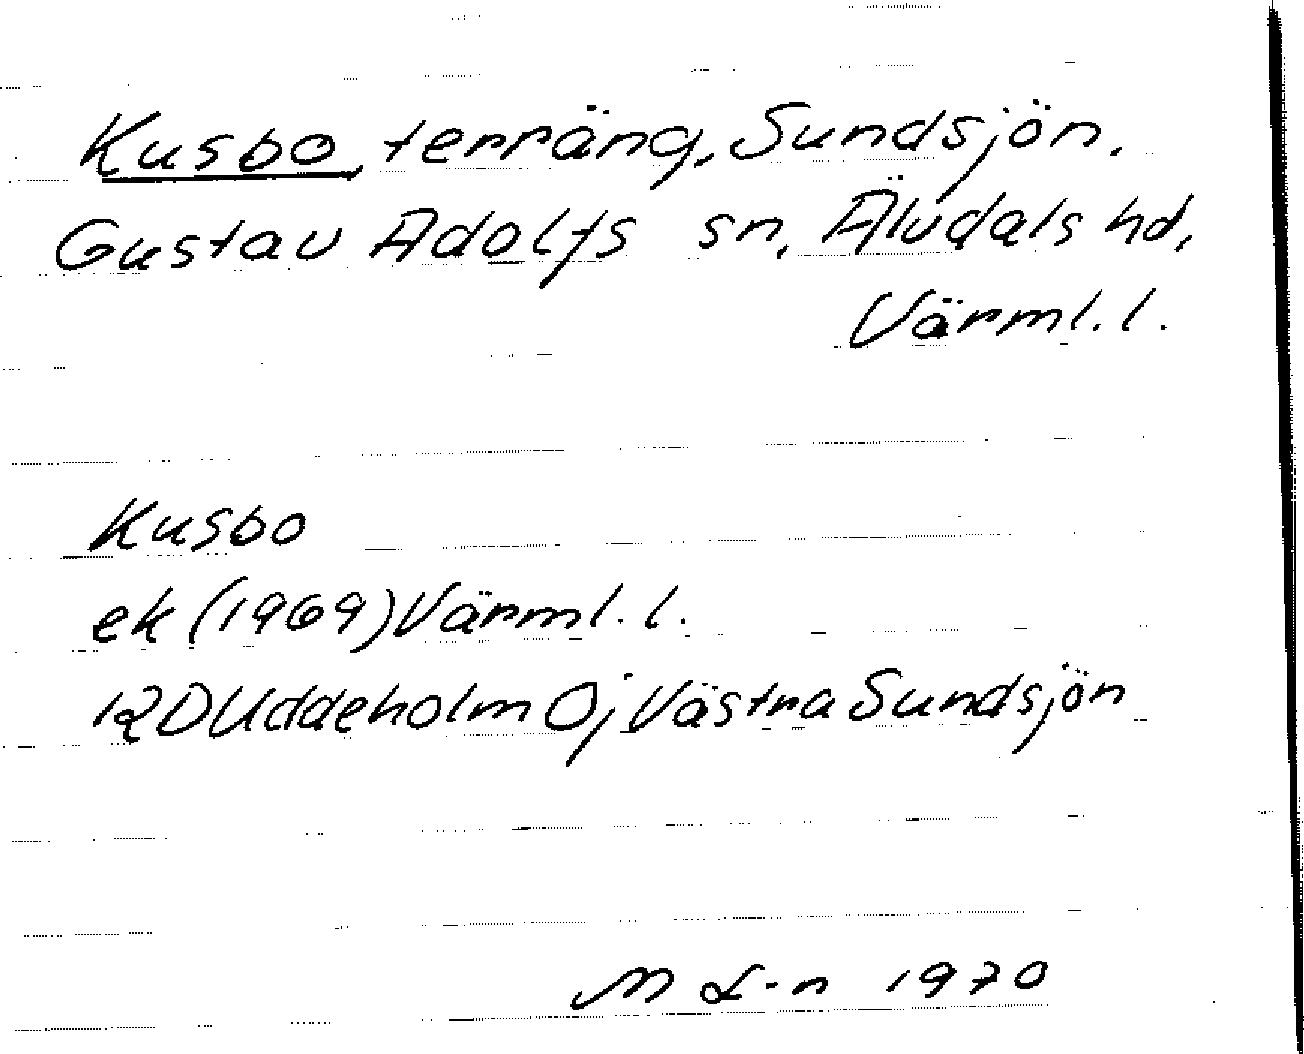 Kusbo, terräng, Sundsjön.
Gustav Adolfs sn, Älvdals hd,
Värml. l.
Kusbo
ek (1969) Värml. l.
12D Uddeholm 0j Västra Sundsjön
M L-n 1970